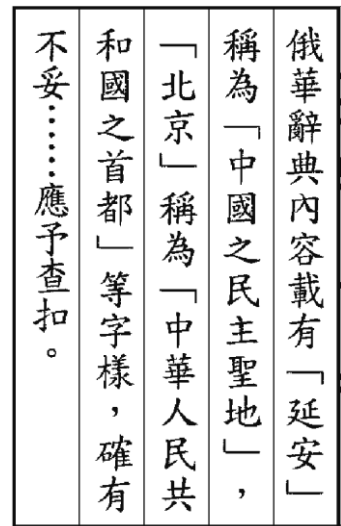 俄華辭典內容載有「延安」
稱為「中國之民主聖地」，
「北京」稱為「中華人民共
和國之首都」等字樣，確有
不妥……應予查扣。